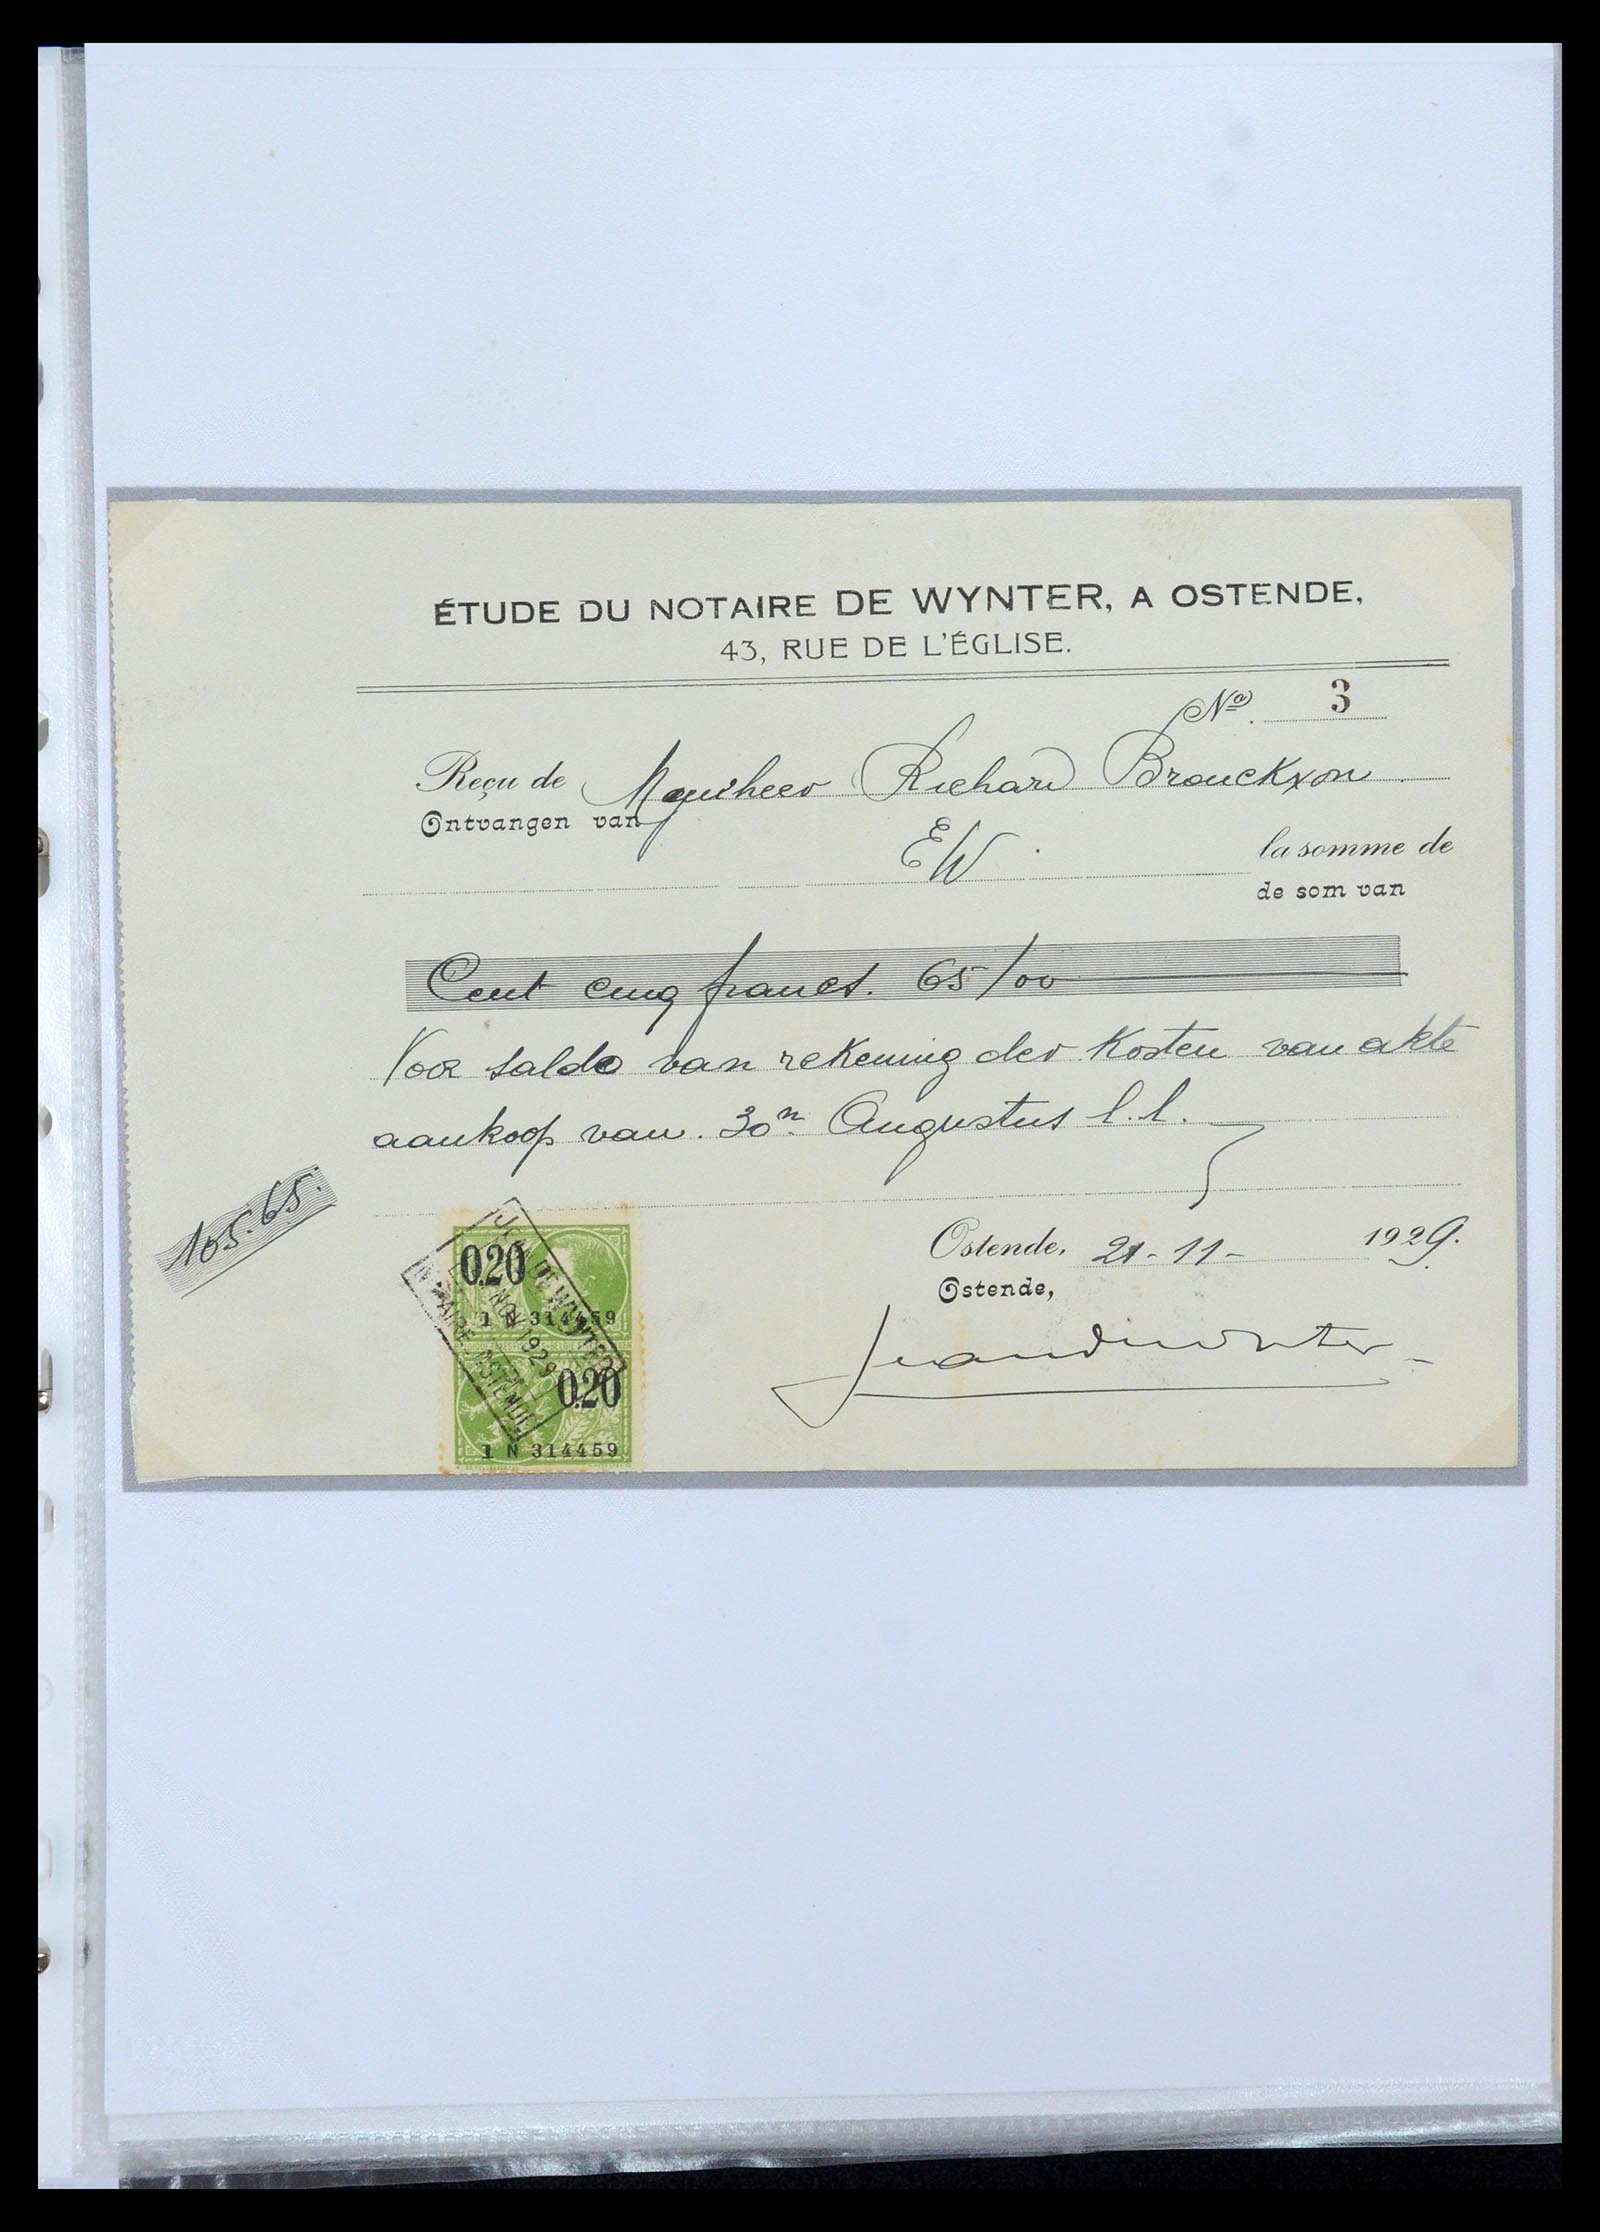 ÉTUDE DU NOTAIRE DE WYNTER, A OSTENDE,
43, RUE DE L'ÉGLISE.
Nº. 3
Reçu de Mynheer Richard Brouckxon
Ontvangen van
EW. la somme de
de som van
Cent cinq francs. 65/00
Voor saldo van rekening der kosten van akte
aankoop van 30n Augustus l.l.
105.65.
Ostende, 21-11- 1929.
Ostende,
Jean de Wynter
0.20
1 N 314459
0.20
1 N 314459
JEAN DE WYNTER
NOV 1929
NOTAIRE OSTENDE